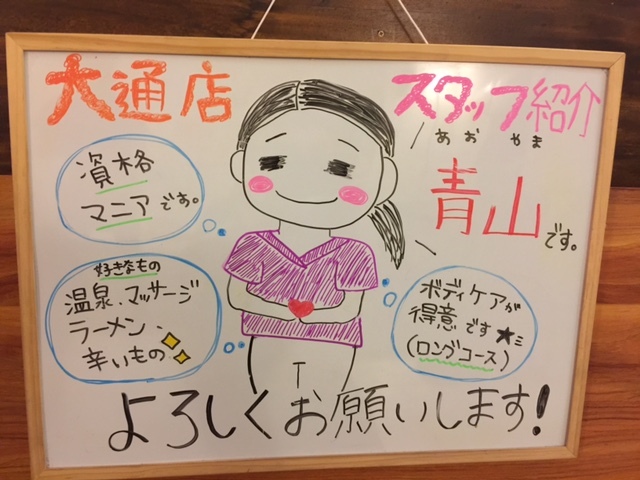 大通店
スタッフ紹介
あお やま
青山です。
資格
マニアです。
好きなもの
温泉、マッサージ
ラーメン、
辛いもの
ボディケアが
得意です★
(ロングコース)
よろしくお願いします!